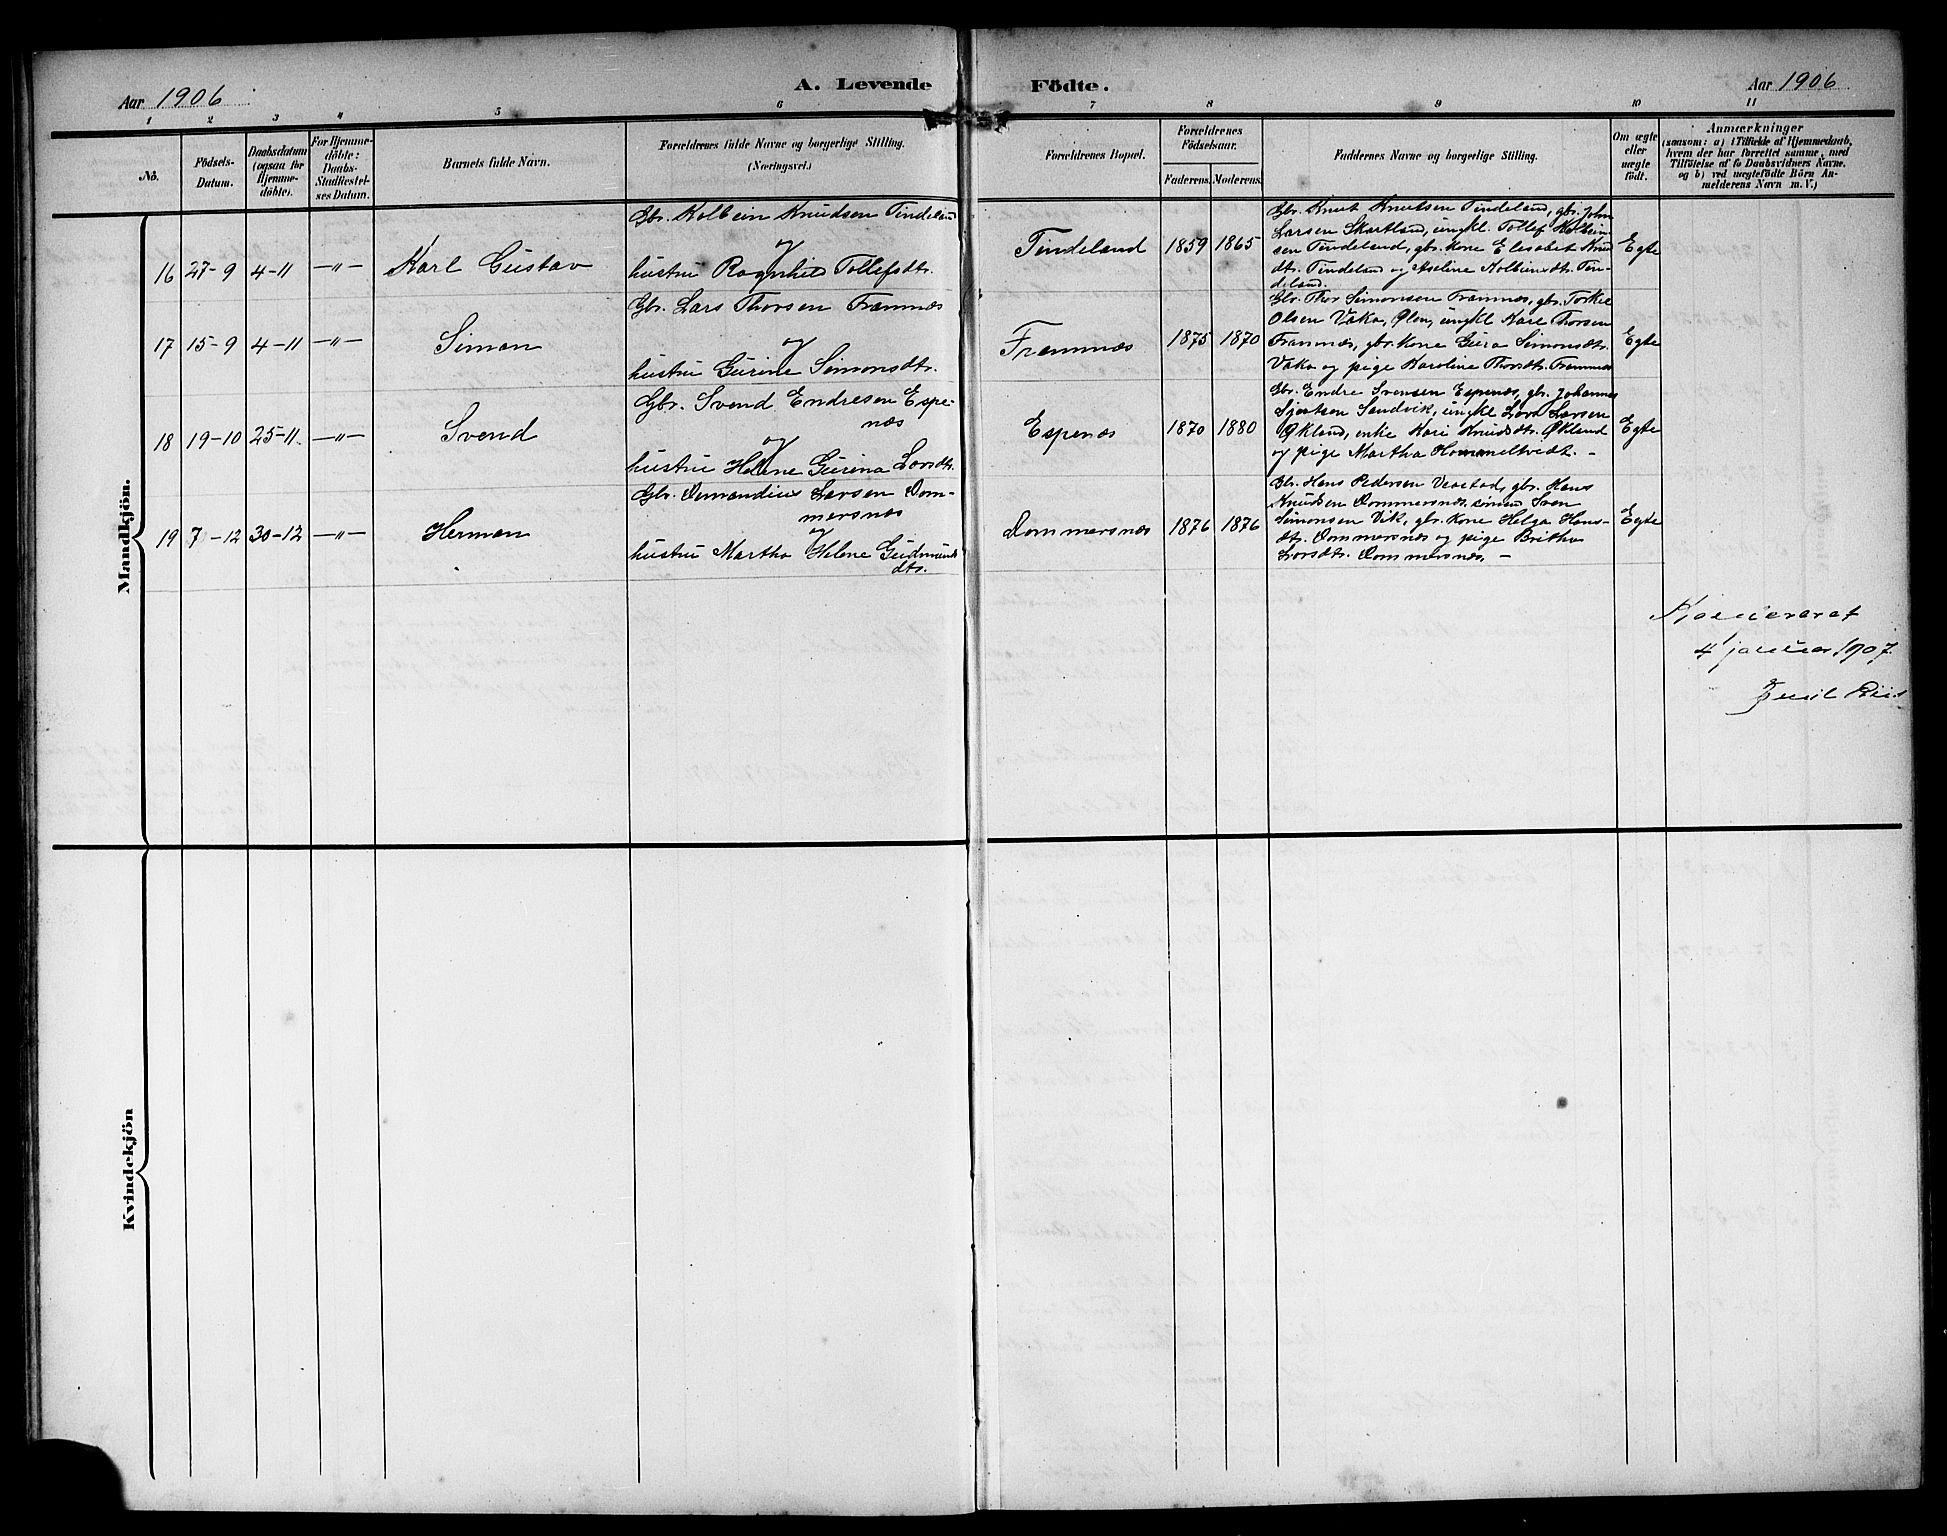 Aar 1906
A. Levende Födte.
Aar 1906
1 2 3 4 5 6 7 8 9 10 11
No.
Födsels-
Datum.
Daabsdatum
(ogsaa för
Hjemme-
döbte).
For Hjemme-
döbte:
Daabs-
Stadfestel-
ses Datum.
Barnets fulde Navn.
Forældrenes fulde Navne og borgerlige Stilling.
(Næringsvei.)
Forældrenes Bopæl.
Forældrenes
Födselsaar.
Faderens. Moderens.
Faddernes Navne og borgerlige Stilling.
Om ægte
eller
uægte
födt.
Anmærkninger
(saasom: a) i Tilfælde af Hjemmedaab,
hvem der har forrettet samme, med
Tilföielse af to Daabsvidners Navne,
og b) ved uægtefödte Börn An-
melderens Navn m. V.)
Mandkjön.
16 27-9 4-11 —"— Karl Gustav
Gbr. Kolbein Knudsen Tindeland
og
hustru Ragnhild Tollefsdtr.
Tindeland 1859 1865
Gbr. Knut Knutsen Tindeland, gbr. John
Larsen Skartland, ungkl. Tollef Kolbein
sen Tindeland, gbr. kone Elisabet Knud
dtr. Tindeland og Aseline Kolbeinsdtr. Tin-
deland.
Egte
17 15-9 4-11 —"— Simon
Gbr. Lars Thorsen Framnæs
og
hustru Gurine Simonsdtr.
Framnæs 1875 1870
Gbr. Thor Simonsen Framnæs, gbr. Torkel
Olsen Vaka, Ølen, ungkl Karl Thorsen
Framnæs, gbr. kone Gura Simonsdtr.
Vaka og pige Karoline Thorsdtr. Framnæs
Egte
18 19-10 25-11 —"— Svend
Gbr. Svend Endresen Espe-
næs
og
hustru Helene Gurina Larsdtr.
Espenæs 1870 1880
Gbr. Endre Svensen Espenæs, gbr. Johannes
Sjurtsen Sandvik, ungkl Lars Larsen
Økland, enke Kari Knudsdtr. Økland
og pige Martha Hommeltvedt. -
Egte
19 7-12 30-12 —"— Herman
Gbr. Osmundius Larsen Dom-
mersnæs
og
hustru Martha Helene Gudmunds
dtr.
Dommersnæs 1876 1876
Gbr. Hans Pedersen gbr. Hans
Knudsen Dommersnæs, Sven
Simonsen Vik, gbr. kone Helga Hans-
dtr. Dommersnæs og pige Britha
Larsdtr. Dommersnæs. -
Egte
4 januar 1907.
Emil Riis
Kvindekjön